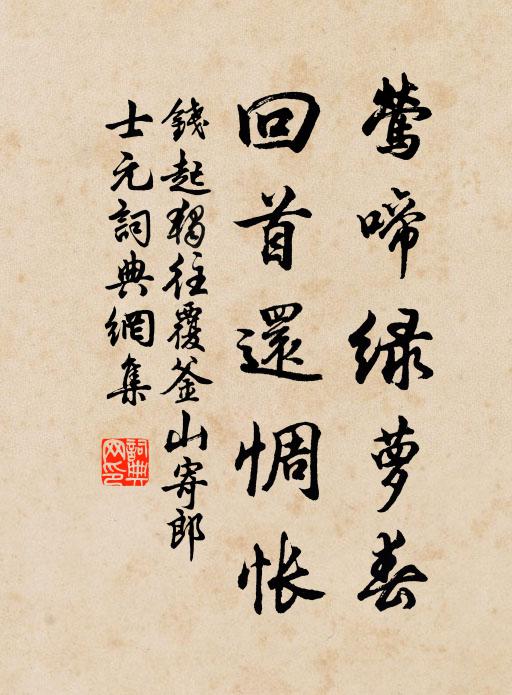 莺啼绿萝春
回首還惆怅
錢起獨往覆釜山寄郎
士元詞典網集
詞典网印